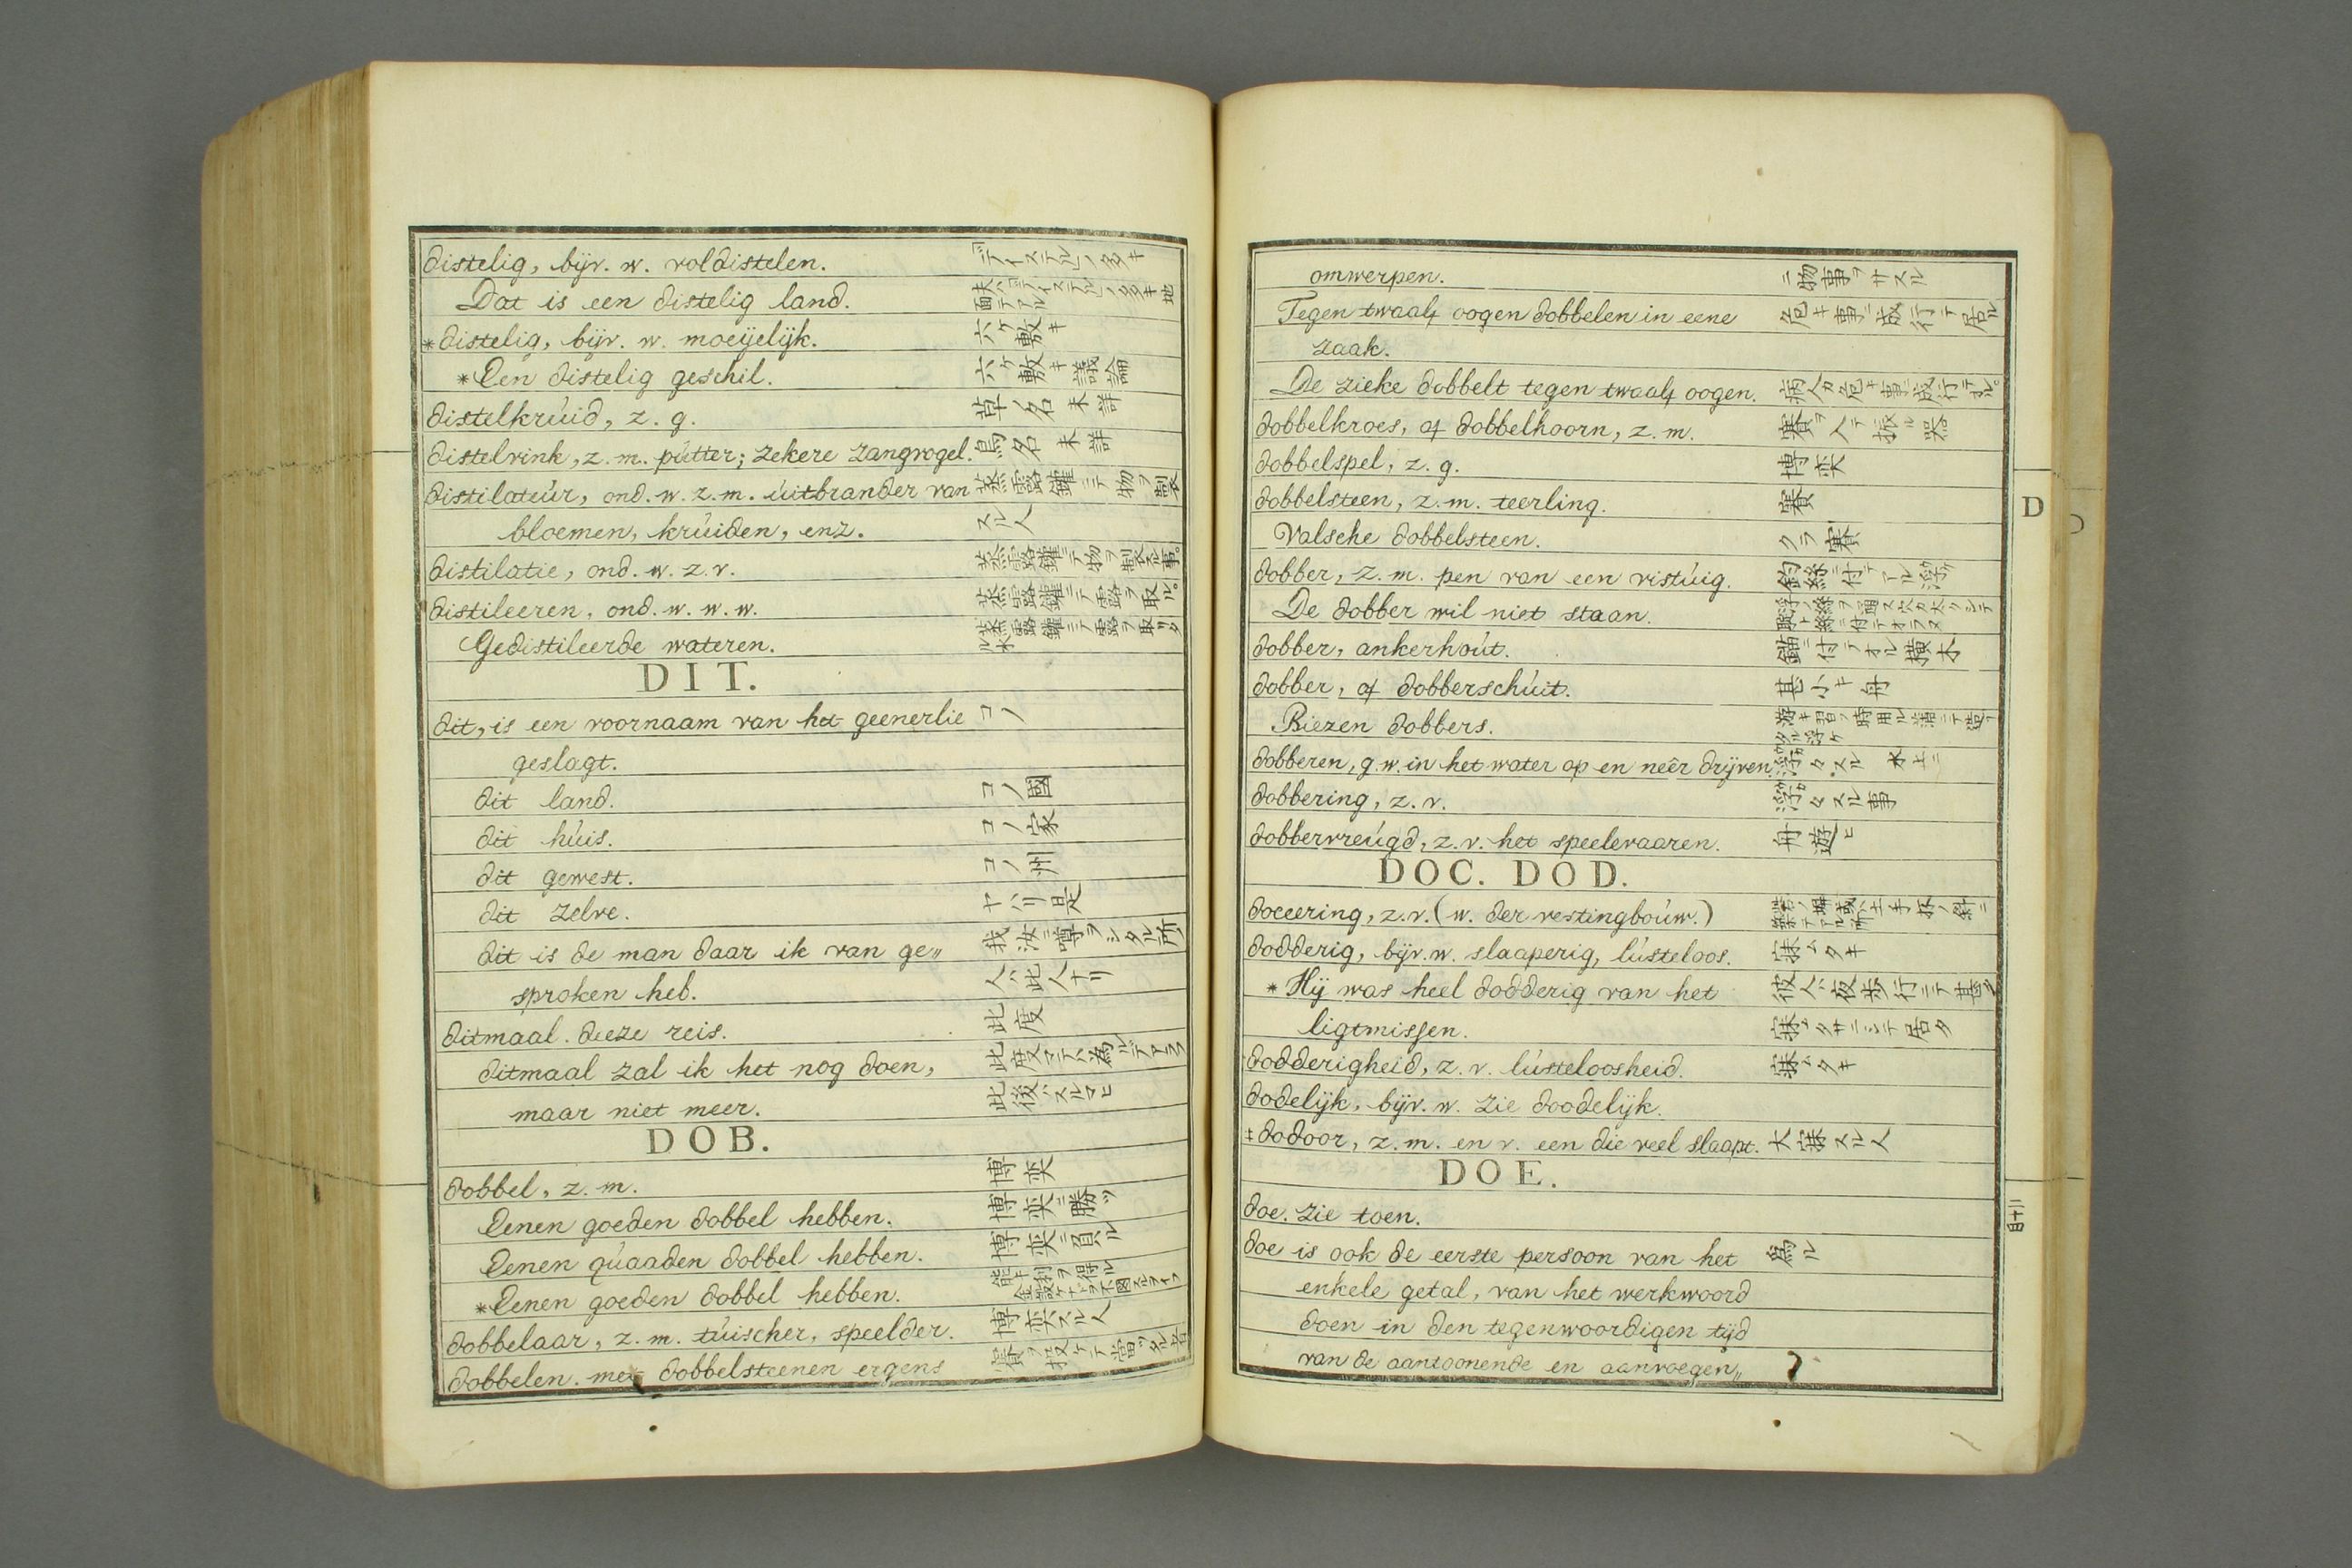 distelig, bijv. w. vol distelen. 「ディステル」ノ多キ
Dat is een distelig land. 夫ハ「ディステル」ノ多キ地面デアル
*distelig, bijv. w. moeijelijk. 六ケ敷キ
*Een distelig geschil. 六ケ敷キ議論
distelkrúid, z. g. 草ノ名 未詳
distelvink, z. m. pútter; zekere zangvogel. 鳥名 未詳
distilateúr, ond. w. z. m. úitbrander van 蒸露鑵ニテ物ヲ製
bloemen, krúiden, enz. スル人
distilatie, ond. w. z. v. 蒸露鑵ニテ物ヲ製スル事。
distileeren, ond. w. w. w. 蒸露鑵ニテ露ヲ取ル。
Gedistileerde wateren. 蒸露鑵ニテ露ヲ取リタル水
DIT.
dit, is een voornaam van het geenerlie コノ
geslagt.
dit land. コノ國
dit húis. コノ家
dit gewest. コノ州
dit zelve. ヤハリ是
dit is de man daar ik van ge„ 我汝ニ噂ヲシタル所
sproken heb. 人ハ此人ナリ
ditmaal. deeze reis. 此度
ditmaal zal ik het nog doen, 此度マデハ為ルデアラフ
maar niet meer. 此後ハスルマヒ
DOB.
dobbel, z. m. 博奕
Eenen goeden dobbel hebben. 博奕ニ勝ツ
Eenen qúaaden dobbel hebben. 博奕ニ負ル
*Eenen goeden dobbel hebben. 能キ利ヲ得ル
dobbelaar, z. m. túischer, speelder. 博奕スル人
dobbelen. met dobbelsteenen ergens
omwerpen. ニ物事ヲサスル
Tegen twaalf oogen dobbelen in eene 危キ事ニ成行テ居ル
zaak.
De zieke dobbelt tegen twaalf oogen. 病人カ危キ事ニ成行テオル。
dobbelkroes, of dobbelhoorn, z. m. 賽ヲ入テ振ル器
dobbelspel, z. g. 博奕
dobbelsteen, z. m. teerling. 賽
Valsche dobbelsteen. クラ賽
dobber, z. m. pen van een vistúig. 釣絲ニ付テアル浮
De dobber wil niet staan.
dobber, ankerhoút. 錨ニ付テオル横木
dobber, of dobberschúit. 甚小キ舟
Biezen dobbers.
dobberen, g. w. in het water op en neêr drijven. 浮々スル 水上ニ
dobbering, z. v. 浮々スル事
dobbervreúgd, z. v. het speelevaaren. 舟遊ヒ
DOC. DOD.
doceering, z. v. (w. der vestingboúw.)
dodderig, bijv. w. slaaperig, lústeloos. 寐ムタキ
*Hij was heel dodderig van het 彼人ハ夜歩行ニテ甚タ
ligtmissen. 寐ムタサニシテ居タ
dodderigheid, z. v. lústeloosheid. 寐ムタキ
dodelijk, bijv. w. zie doodelijk.
‡dodoor, z. m. en v. een die veel slaapt. 大寐スル人
DOE.
doe. zie toen.
doe is ook de eerste persoon van het 為ル
enkele getal, van het werkwoord
doen in den tegenwoordigen tijd
van de aantoonende en aanvoegen„
D